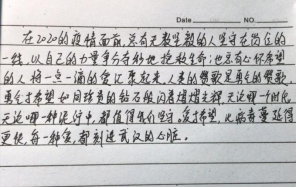 Date NO.
在2020的疫情面前,总有无数坚毅的人坚守在岗位的
一线,以自己的力量争分夺秒地挽救生命;也总有心怀希望
的人将一点一滴的爱汇聚起来,人类的赞歌是勇气的赞歌,
勇气希望如同珍贵的钻石般闪着熠熠光辉,无论哪一个时代,
无论哪一种逆行中,都值得我们坚守。爱希望,比病毒蔓延得
更快,每一种爱,都刻进武汉的心脏。